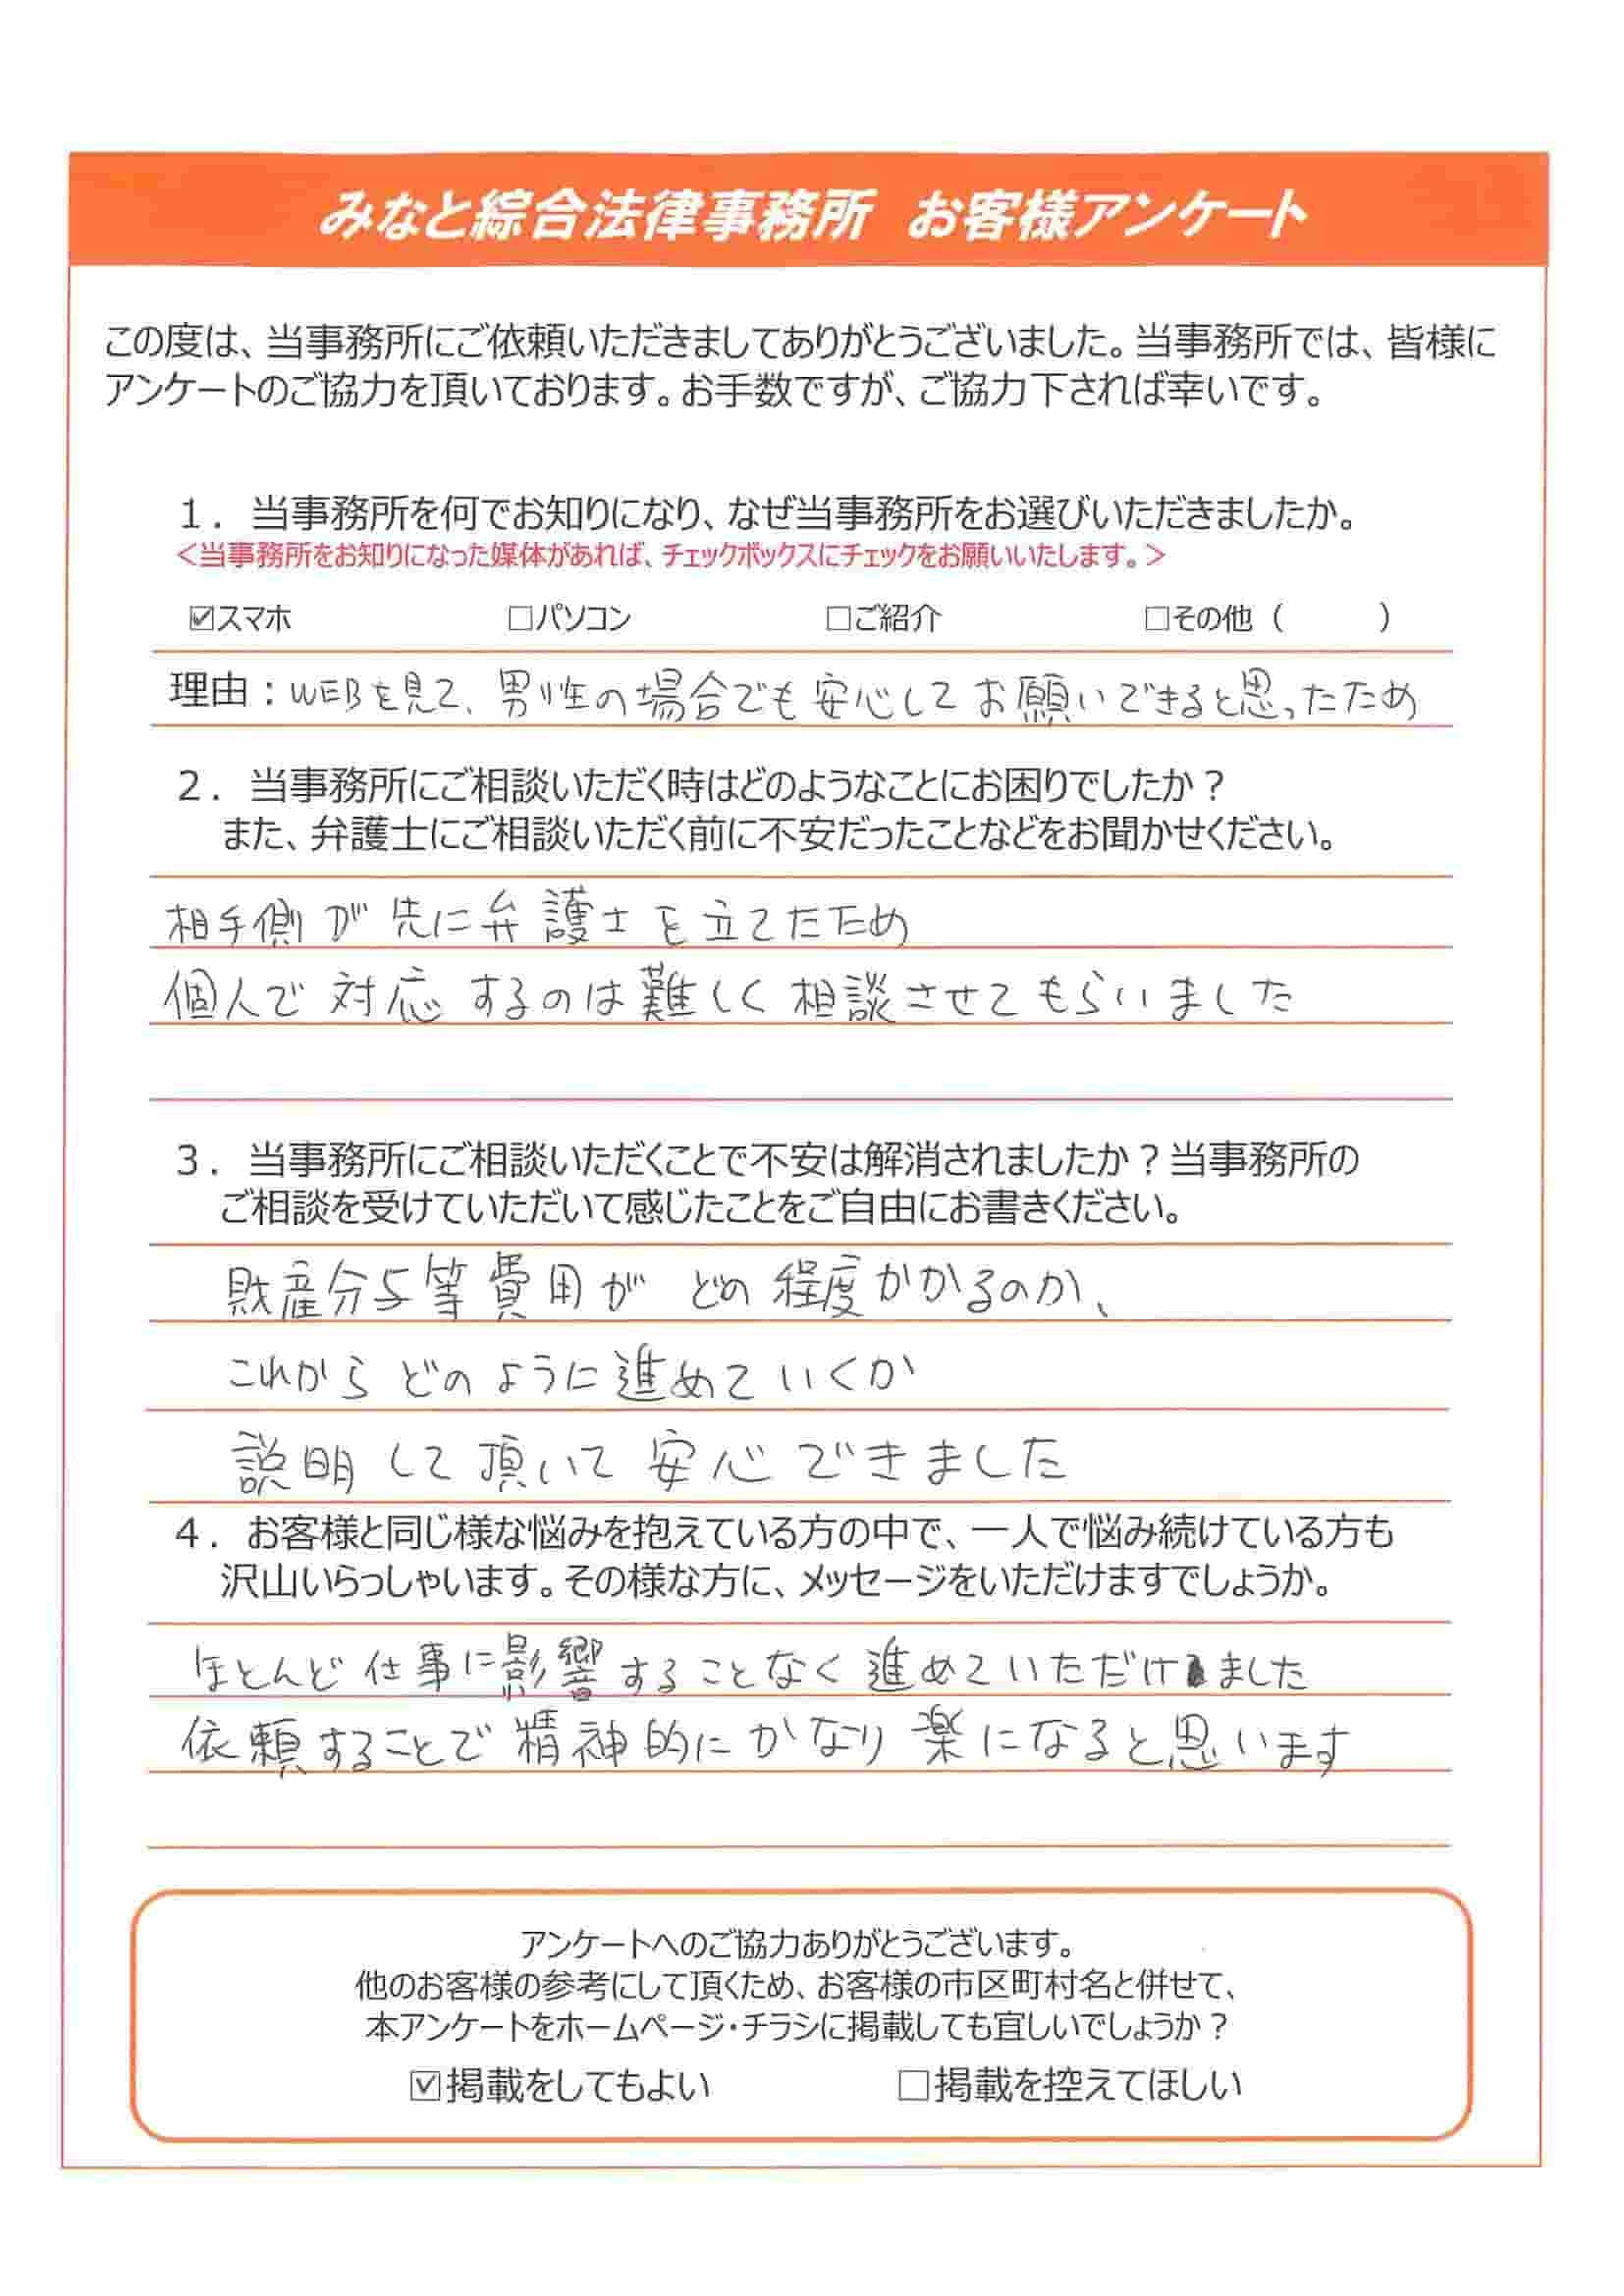 みなと綜合法律事務所 お客様アンケート
この度は、当事務所にご依頼いただきましてありがとうございました。当事務所では、皆様に
アンケートのご協力を頂いております。お手数ですが、ご協力下されば幸いです。
１．当事務所を何でお知りになり、なぜ当事務所をお選びいただきましたか。
＜当事務所をお知りになった媒体があれば、チェックボックスにチェックをお願いいたします。＞
☑スマホ □パソコン □ご紹介 □その他（ ）
理由：WEBを見て、男性の場合でも安心してお願いできると思ったため
２．当事務所にご相談いただく時はどのようなことにお困りでしたか？
また、弁護士にご相談いただく前に不安だったことなどをお聞かせください。
相手側が先に弁護士を立てたため
個人で対応するのは難しく相談させてもらいました
３．当事務所にご相談いただくことで不安は解消されましたか？当事務所の
ご相談を受けていただいて感じたことをご自由にお書きください。
財産分与等費用がどの程度かかるのか、
これからどのように進めていくか
説明して頂いて安心できました
４．お客様と同じ様な悩みを抱えている方の中で、一人で悩み続けている方も
沢山いらっしゃいます。その様な方に、メッセージをいただけますでしょうか。
ほとんど仕事に影響することなく進めていただけました
依頼することで精神的にかなり楽になると思います
アンケートへのご協力ありがとうございます。
他のお客様の参考にして頂くため、お客様の市区町村名と併せて、
本アンケートをホームページ・チラシに掲載しても宜しいでしょうか？
☑掲載をしてもよい □掲載を控えてほしい